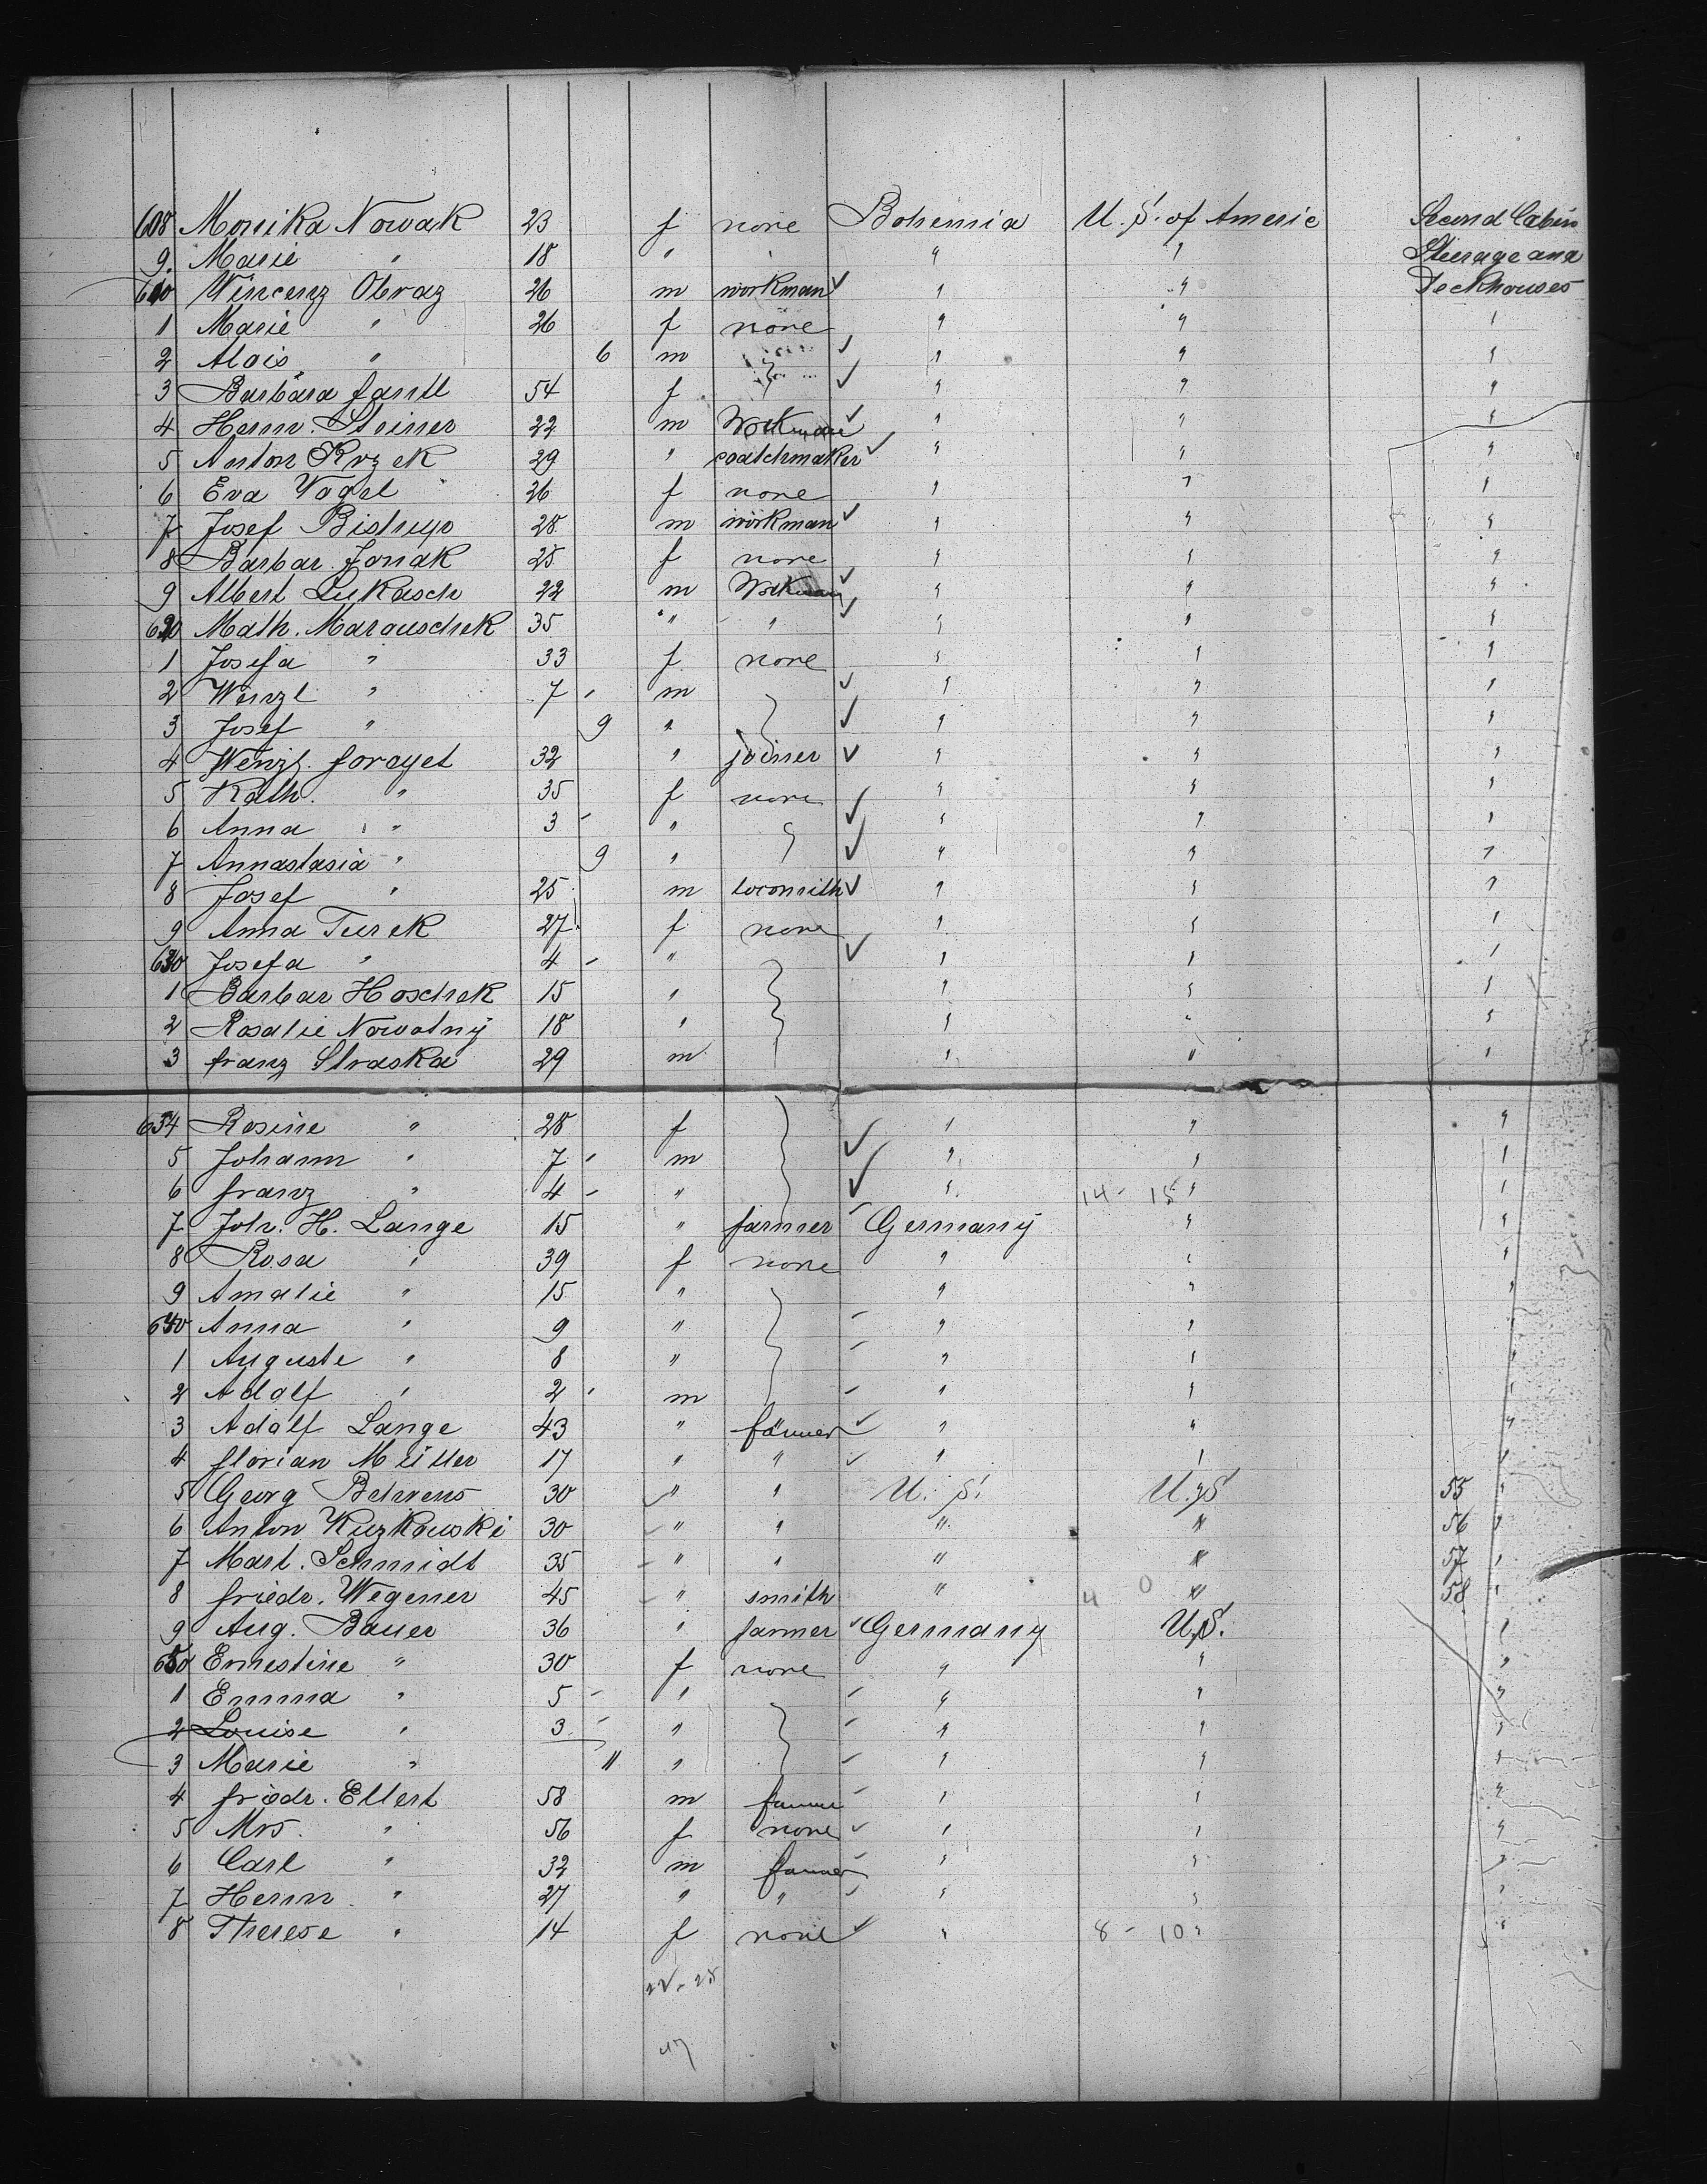 608 Monika Nowak 23 f none Bohemia U. S. of Americ Second Cabin
9. Marie " 18 " " " " Steerage and
610 Wincenz Obraz 26 m workman " " Deckhouses
1 Marie " 26 f none " " "
2 Alois " 6 m " " "
3 Barbara fantl 54 f " " "
4 Herm. Steiner 22 m Workman " " "
5 Anton Krzek 29 " coatchmaker " " "
6 Eva Vogel 26 f none " " "
7 Josef Bistryp 28 m workman " " "
8 Barbar. Jonak 28 f none " " "
9 Albert Lukasch 22 m Workman " " "
620 Math. Marouschek 35 " " " " "
1 Josefa " 33 f none " " "
2 Wenzl " 7 - m " " "
3 Josef " 9 " " " "
4 Wenzl. forayet 32 " joiner " " "
5 Kath. " 35 f none " " "
6 Anna " 3 - " " " "
7 Annastasia " 9 " " " "
8 Josef " 25 m locomith " " "
9 Anna Turek 27 f none " " "
630 Josefa " 4 - " " " "
1 Barbar Hoschek 15 " " " "
2 Rosalie Nowotny 18 " " " "
3 franz Straska 29 m " " "
634 Rosine " 28 f " " "
5 Johann " 7 - m " " "
6 franz " 4 - " " 14 - 15 " "
7 Joh. H. Lange 15 " farmer Germany " "
8 Rosa " 39 f none " " "
9 Amalie " 15 " " " "
640 Anna " 9 " " " "
1 Auguste " 8 " " " "
2 Adolf " 2 - m " " "
3 Adolf Lange 43 " farmer " " "
4 florian Müller 17 " " " " "
5 Georg Behrens 30 " " U. S. U.S 55 "
6 Anton Kuzkowski 30 " " " " 56 "
7 Mart. Schmidt 35 " " " " 57 "
8 friedr. Wegener 45 " smith " 4 0 " 58 "
9 Aug. Bauer 36 " farmer Germany U.S. "
650 Ernestine " 30 f none " " "
1 Emma " 5 - " " " "
2 Louise " 3 - " " " "
3 Marie " 11 " " " "
4 friedr. Ellert 58 m farmer " " "
5 Mrs. " 56 f none " " "
6 Carl " 32 m farmer " " "
7 Herm. " 27 " " " " "
8 Therese " 14 f none " 8 - 10 " "